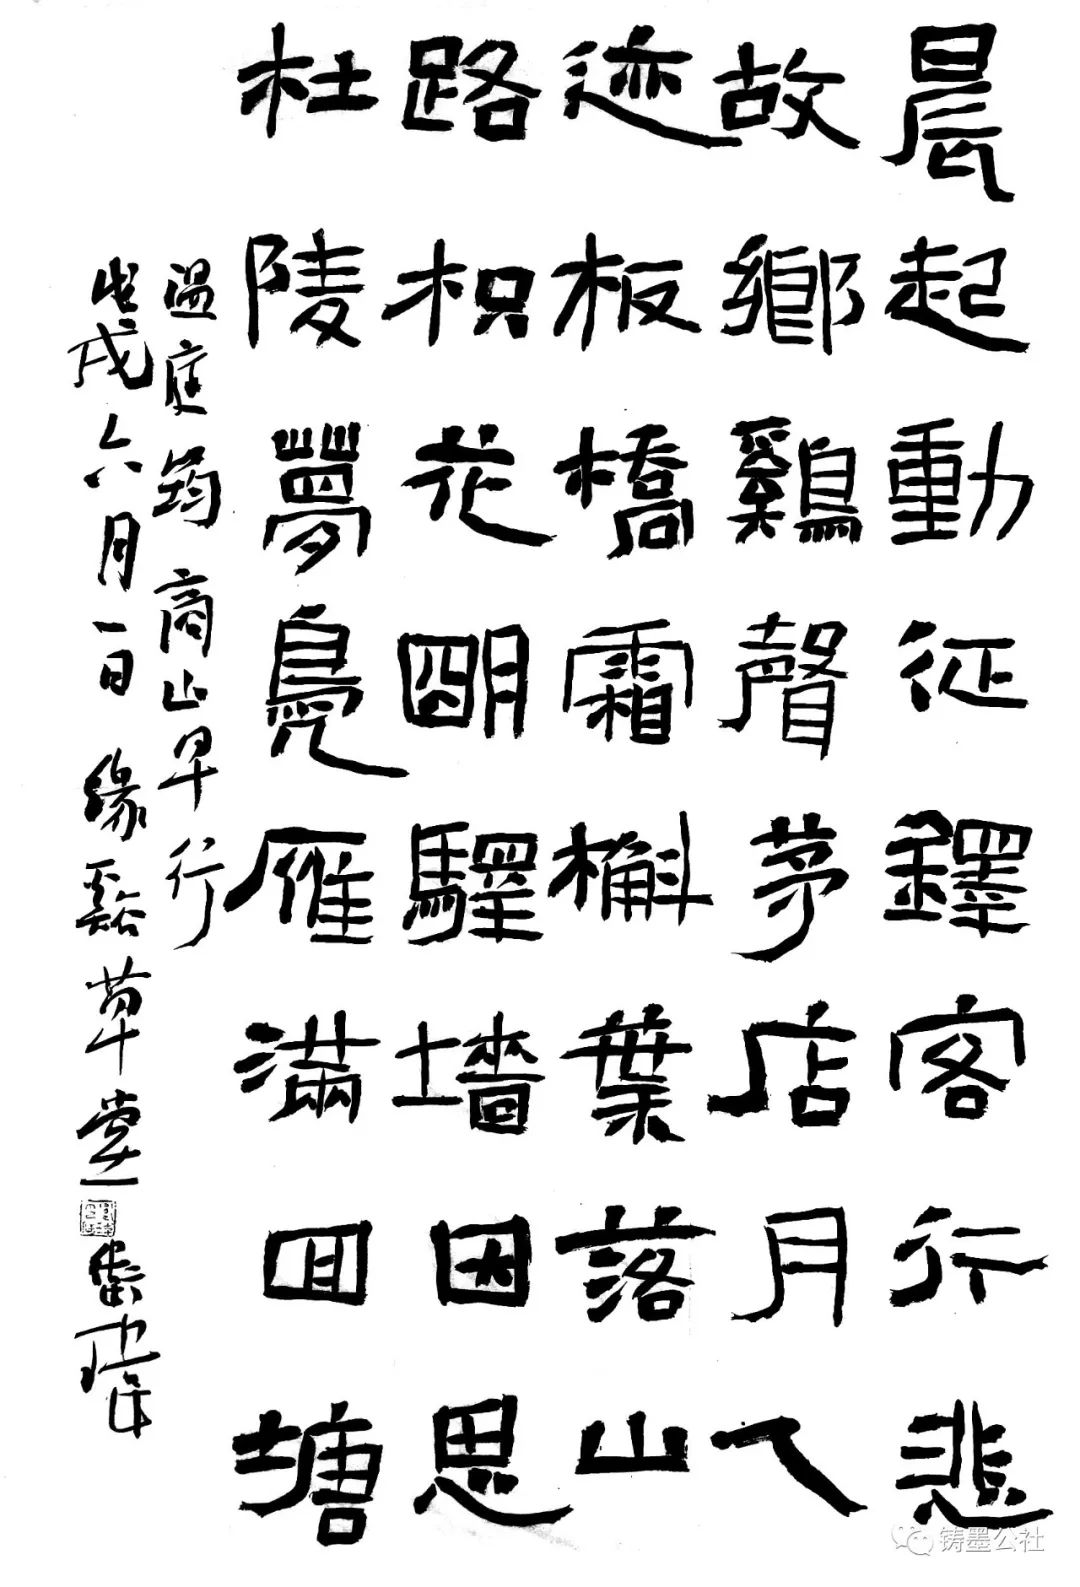 晨起動征鐸客行悲
故鄉鷄聲茅店月人
迹板橋霜槲葉落山
路枳花明驛墻因思
杜陵夢鳧雁滿回塘
温庭筠商山早行
戊戌六月一日緣谿草堂
铸墨公社